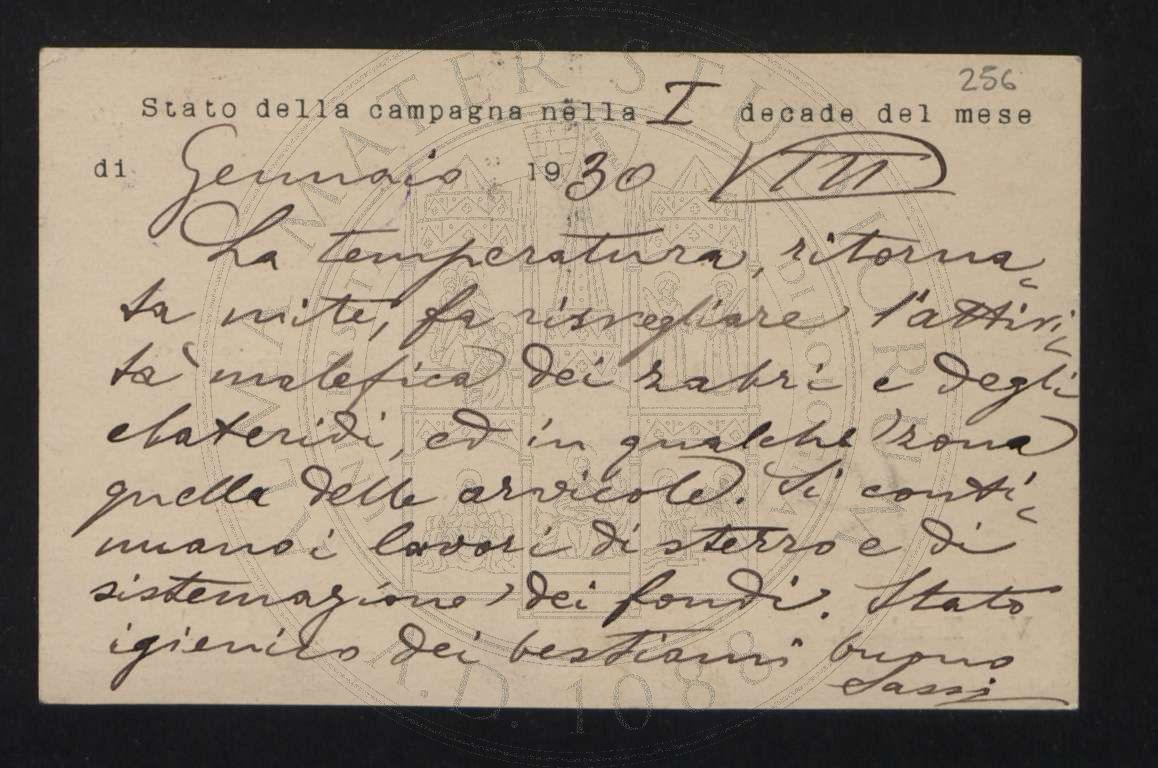 256
Stato della campagna nella I decade del mese
di Gennaio 1930 VIII
La temperatura, ritorna-
ta mite, fa risvegliare l'attivi-
tà malefica dei zabri e degli
elateridi, ed in qualche zona
quella delle arvicole. Si conti-
nuano i lavori di sterro e di
sistemazione dei fondi. Stato
igienico dei bestiami buono
Sassi
ALMA MATER STUDIORUM
A.D. 1088